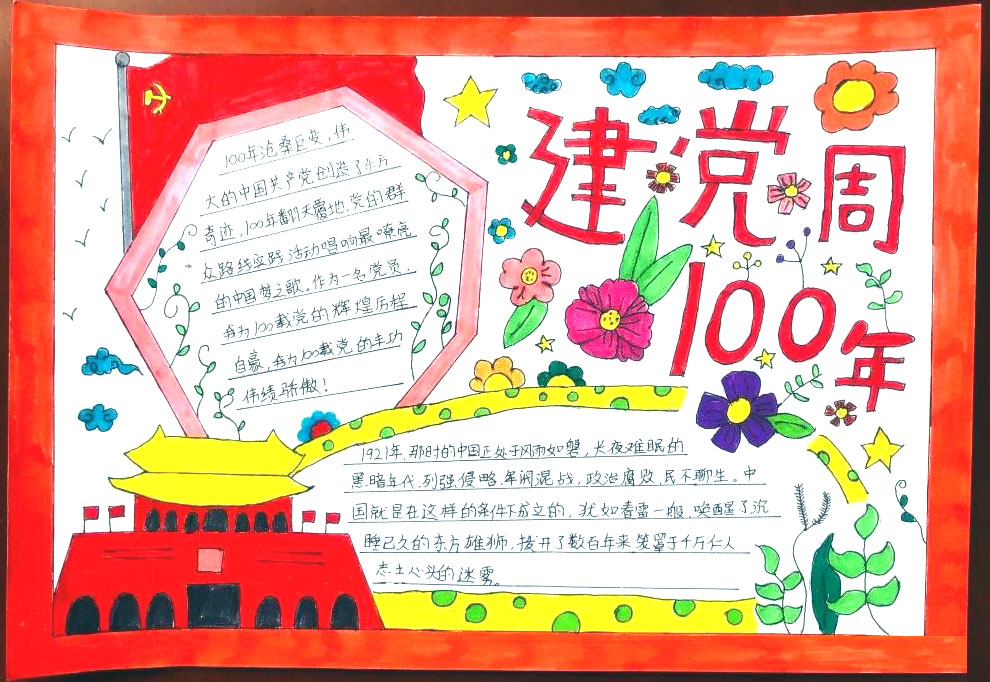 建党周
100年
100年沧桑巨变，伟
大的中国共产党创造了东方
奇迹，100年翻天覆地，党的群
众路线实践活动唱响最嘹亮
的中国梦之歌。作为一名党员，
我为100载党的辉煌历程
自豪，我为100载党的丰功
伟绩骄傲！
1921年，那时的中国正处于风雨如磐，长夜难眠的
黑暗年代，列强侵略，军阀混战，政治腐败，民不聊生。中
国就是在这样的条件下成立的，犹如春雷一般，唤醒了沉
睡已久的东方雄狮，拨开了数百年来笼罩于千万仁人
志士心头的迷雾。